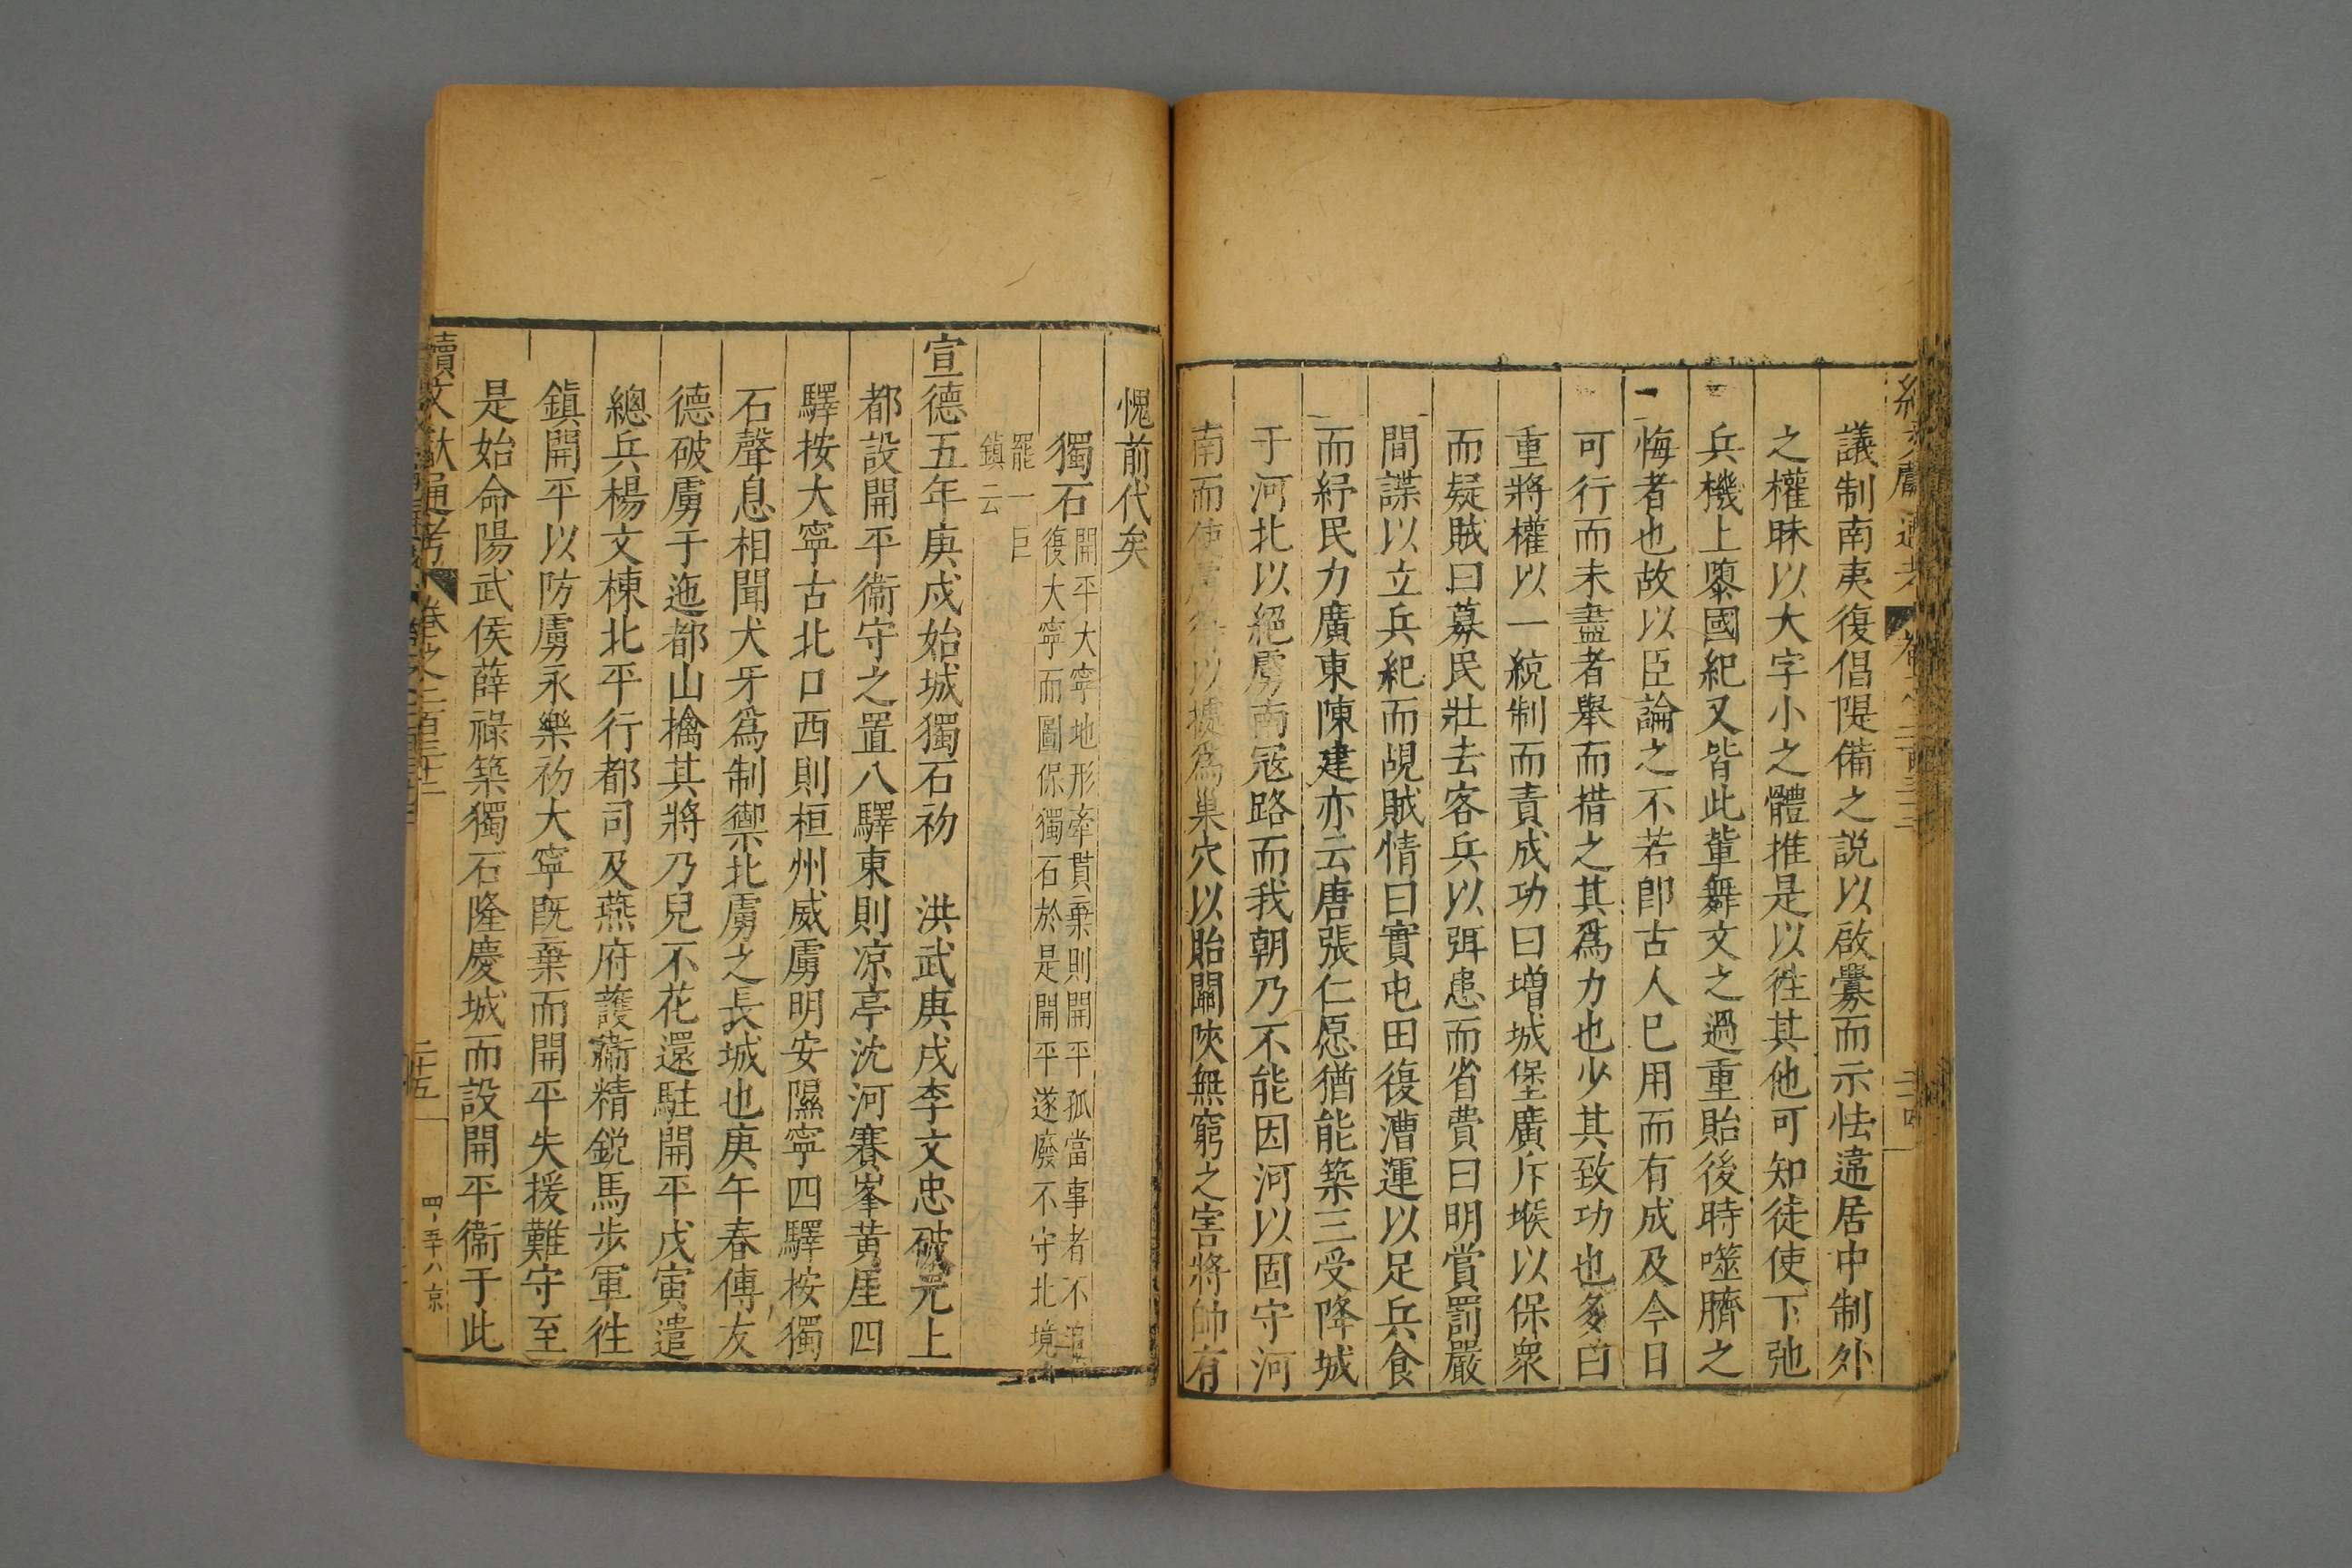 議制南夷復倡隄備之説以啟釁而示怯遠居中制外
之權昧以大字小之體推是以徃其他可知徒使下弛
兵機上隳國紀又皆此軰舞文之過重貽後時噬臍之
悔者也故以臣論之不若卽古人已用而有成及今日
可行而未盡者舉而措之其爲力也少其致功也多曰
重將權以一統制而責成功曰增城堡廣斥堠以保衆
而疑賊曰募民壯去客兵以弭患而省費曰明賞罰嚴
間諜以立兵紀而覘賊情曰實屯田復漕運以足兵食
而紓民力廣東陳建亦云唐張仁愿猶能築三受降城
于河北以絕虜南寇路而我朝乃不能因河以固守河
南而使虜得以據爲巢穴以貽關陝無窮之害將帥有
愧前代矣
獨石
開平大寧地形牽貫棄則開平孤當事者不
復大寧而圖保獨石於是開平遂廢不守北境
罷一巨
鎮云
宣德五年庚戌始城獨石初 洪武庚戌李文忠破元上
都設開平衞守之置八驛東則凉亭沈河賽峯黃崖四
驛按大寧古北口西則桓州威虜明安隰寧四驛按獨
石聲息相聞犬牙爲制禦北虜之長城也庚午春傅友
德破虜于迤都山擒其將乃兒不花還駐開平戊寅遣
總兵楊文棟北平行都司及燕府護衞精鋭馬步軍徃
鎮開平以防虜永樂初大寧旣棄而開平失援難守至
是始命陽武侯薛祿築獨石隆慶城而設開平衞于此
續文獻通考 卷之二百三十二 二十五 四百五十八 京